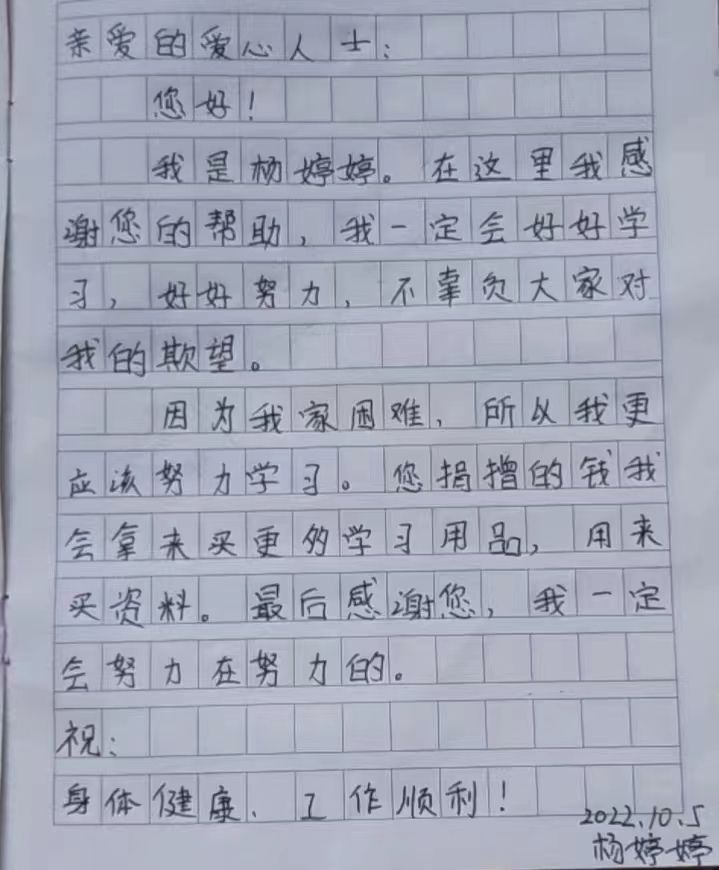 亲爱的爱心人士：
您好！
我是杨婷婷。在这里我感
谢您的帮助，我一定会好好学
习，好好努力，不辜负大家对
我的欺望。
因为我家困难，所以我更
应该努力学习。您捐增的钱我
会拿来买更多学习用品，用来
买资料。最后感谢您，我一定
会努力在努力的。
祝：
身体健康、工作顺利！
2022.10.5
杨婷婷